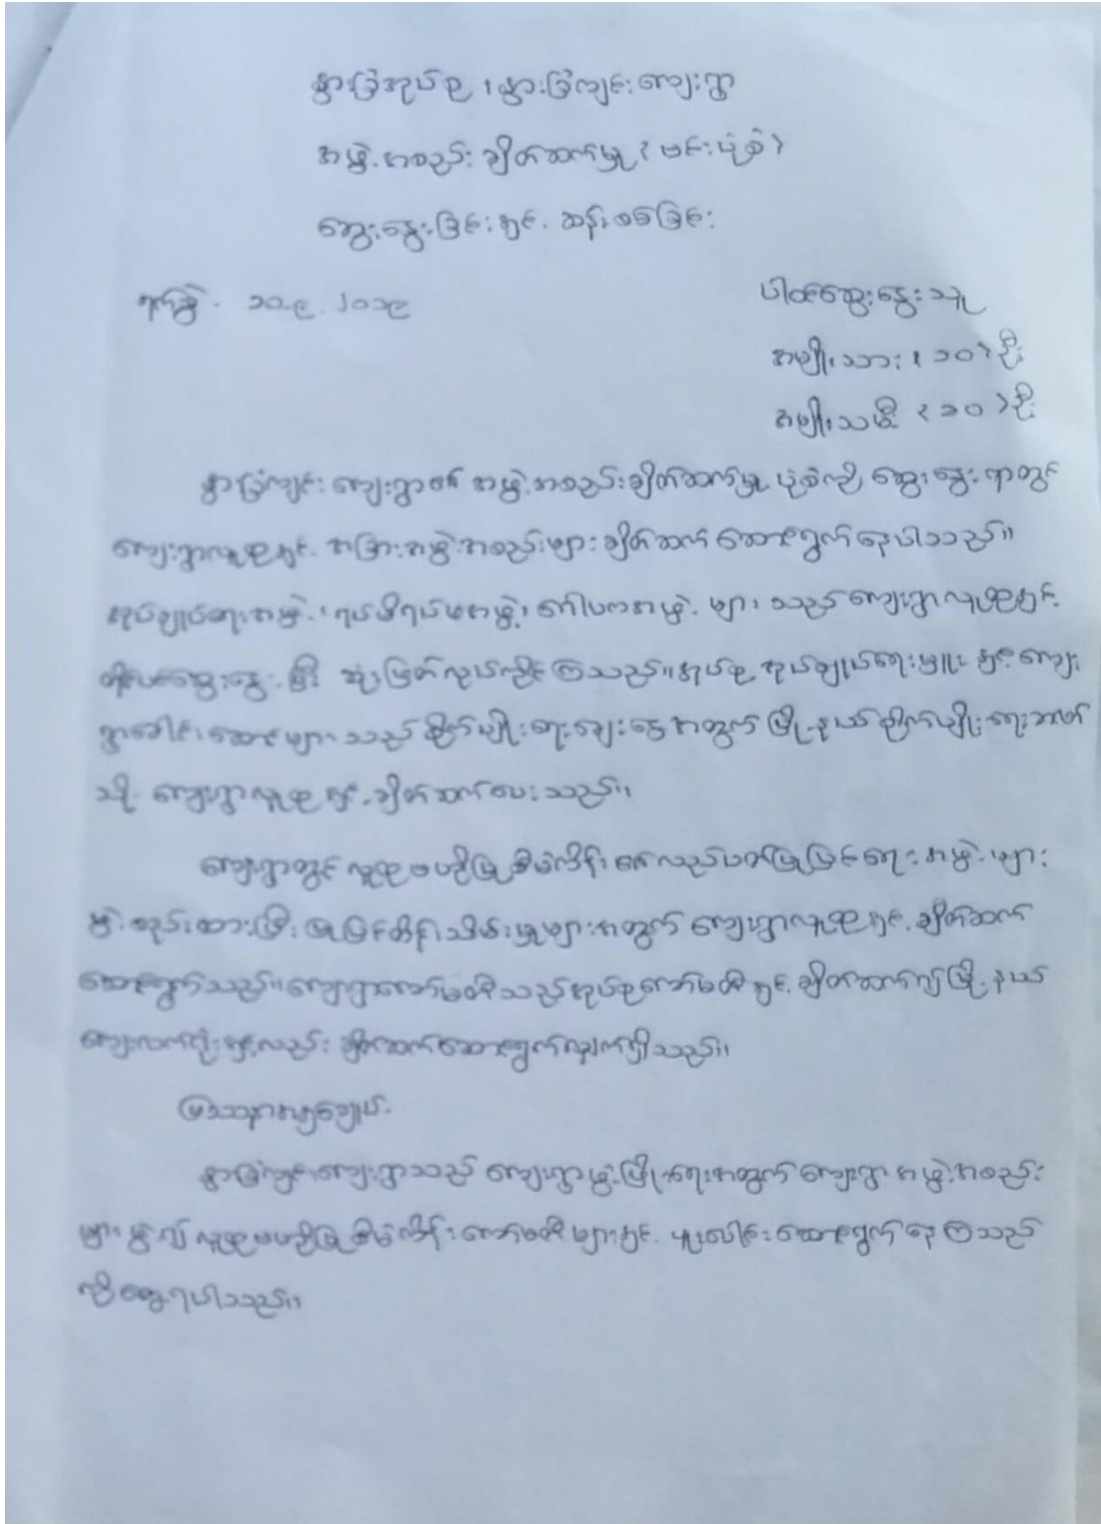 နွားခြံအုပ်စု၊ နွားခြံကျင်းကျေးရွာ
အဖွဲ့အစည်းချိတ်ဆက်မှု (ဗင်းပုံစံ)
ဆွေးနွေးခြင်းနှင့် ဆန်းစစ်ခြင်း
ရက်စွဲ - ၁၁.၉.၂၀၁၉
ပါဝင်ဆွေးနွေးသူ
အမျိုးသား (၁၀) ဦး
အမျိုးသမီး (၁၀) ဦး
နွားခြံကျင်းကျေးရွာ၏ အဖွဲ့အစည်းချိတ်ဆက်မှုပုံစံကို ဆွေးနွေးရာတွင်
ကျေးရွာလူထုနှင့် အခြားအဖွဲ့အစည်းများ ချိတ်ဆက် ဆောင်ရွက်နေပါသည်။
အုပ်ချုပ်ရေးအဖွဲ့၊ ရပ်မိရပ်ဖအဖွဲ့၊ ဂေါပကအဖွဲ့များသည် ကျေးရွာလူထုနှင့်
တိုင်ပင်ဆွေးနွေးပြီး ဆုံးဖြတ်လုပ်ကိုင်ကြသည်။ အုပ်စုအုပ်ချုပ်ရေးမှူးနှင့် ကျေး
ရွာခေါင်းဆောင်များသည် စိုက်ပျိုးရေးချေးငွေအတွက် မြို့နယ်စိုက်ပျိုးရေးဘဏ်
သို့ ကျေးရွာလူထုနှင့် ချိတ်ဆက်ပေးသည်။
ကျေးရွာတွင် လူထုဗဟိုပြုစီမံကိန်း၏ လည်ပတ်ပြုပြင်ရေးအဖွဲ့များ
ဖွဲ့စည်းထားပြီး ပြုပြင်ထိန်းသိမ်းမှုများအတွက် ကျေးရွာလူထုနှင့် ချိတ်ဆက်
ဆောင်ရွက်သည်။ ကျေးရွာကော်မတီသည် အုပ်စုကော်မတီနှင့် ချိတ်ဆက်၍ မြို့နယ်
ကျေးလက်ဦးစီးနှင့်လည်း ချိတ်ဆက်ဆောင်ရွက်လျက်ရှိသည်။
ပြဿနာအနှစ်ချုပ်
နွားခြံကျင်းကျေးရွာသည် ကျေးရွာဖွံ့ဖြိုးရေးအတွက် ကျေးရွာအဖွဲ့အစည်း
များဖွဲ့၍ လူထုဗဟိုပြုစီမံကိန်းကော်မတီများနှင့် ပူးပေါင်းဆောင်ရွက်နေကြသည်
ကို တွေ့ရပါသည်။